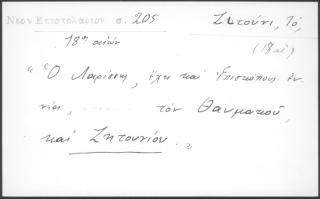 Νεον Επιστολαριον σ. 205
Ζητούνι, Τό,
18ος αιών
(18 αἰ)
"Ὁ Λαρίσσης, ἔχει καί Ἐπισκόπους ἐν-
νέα, ........ τόν Θαυμακοῦ,
καί Ζητουνίου.